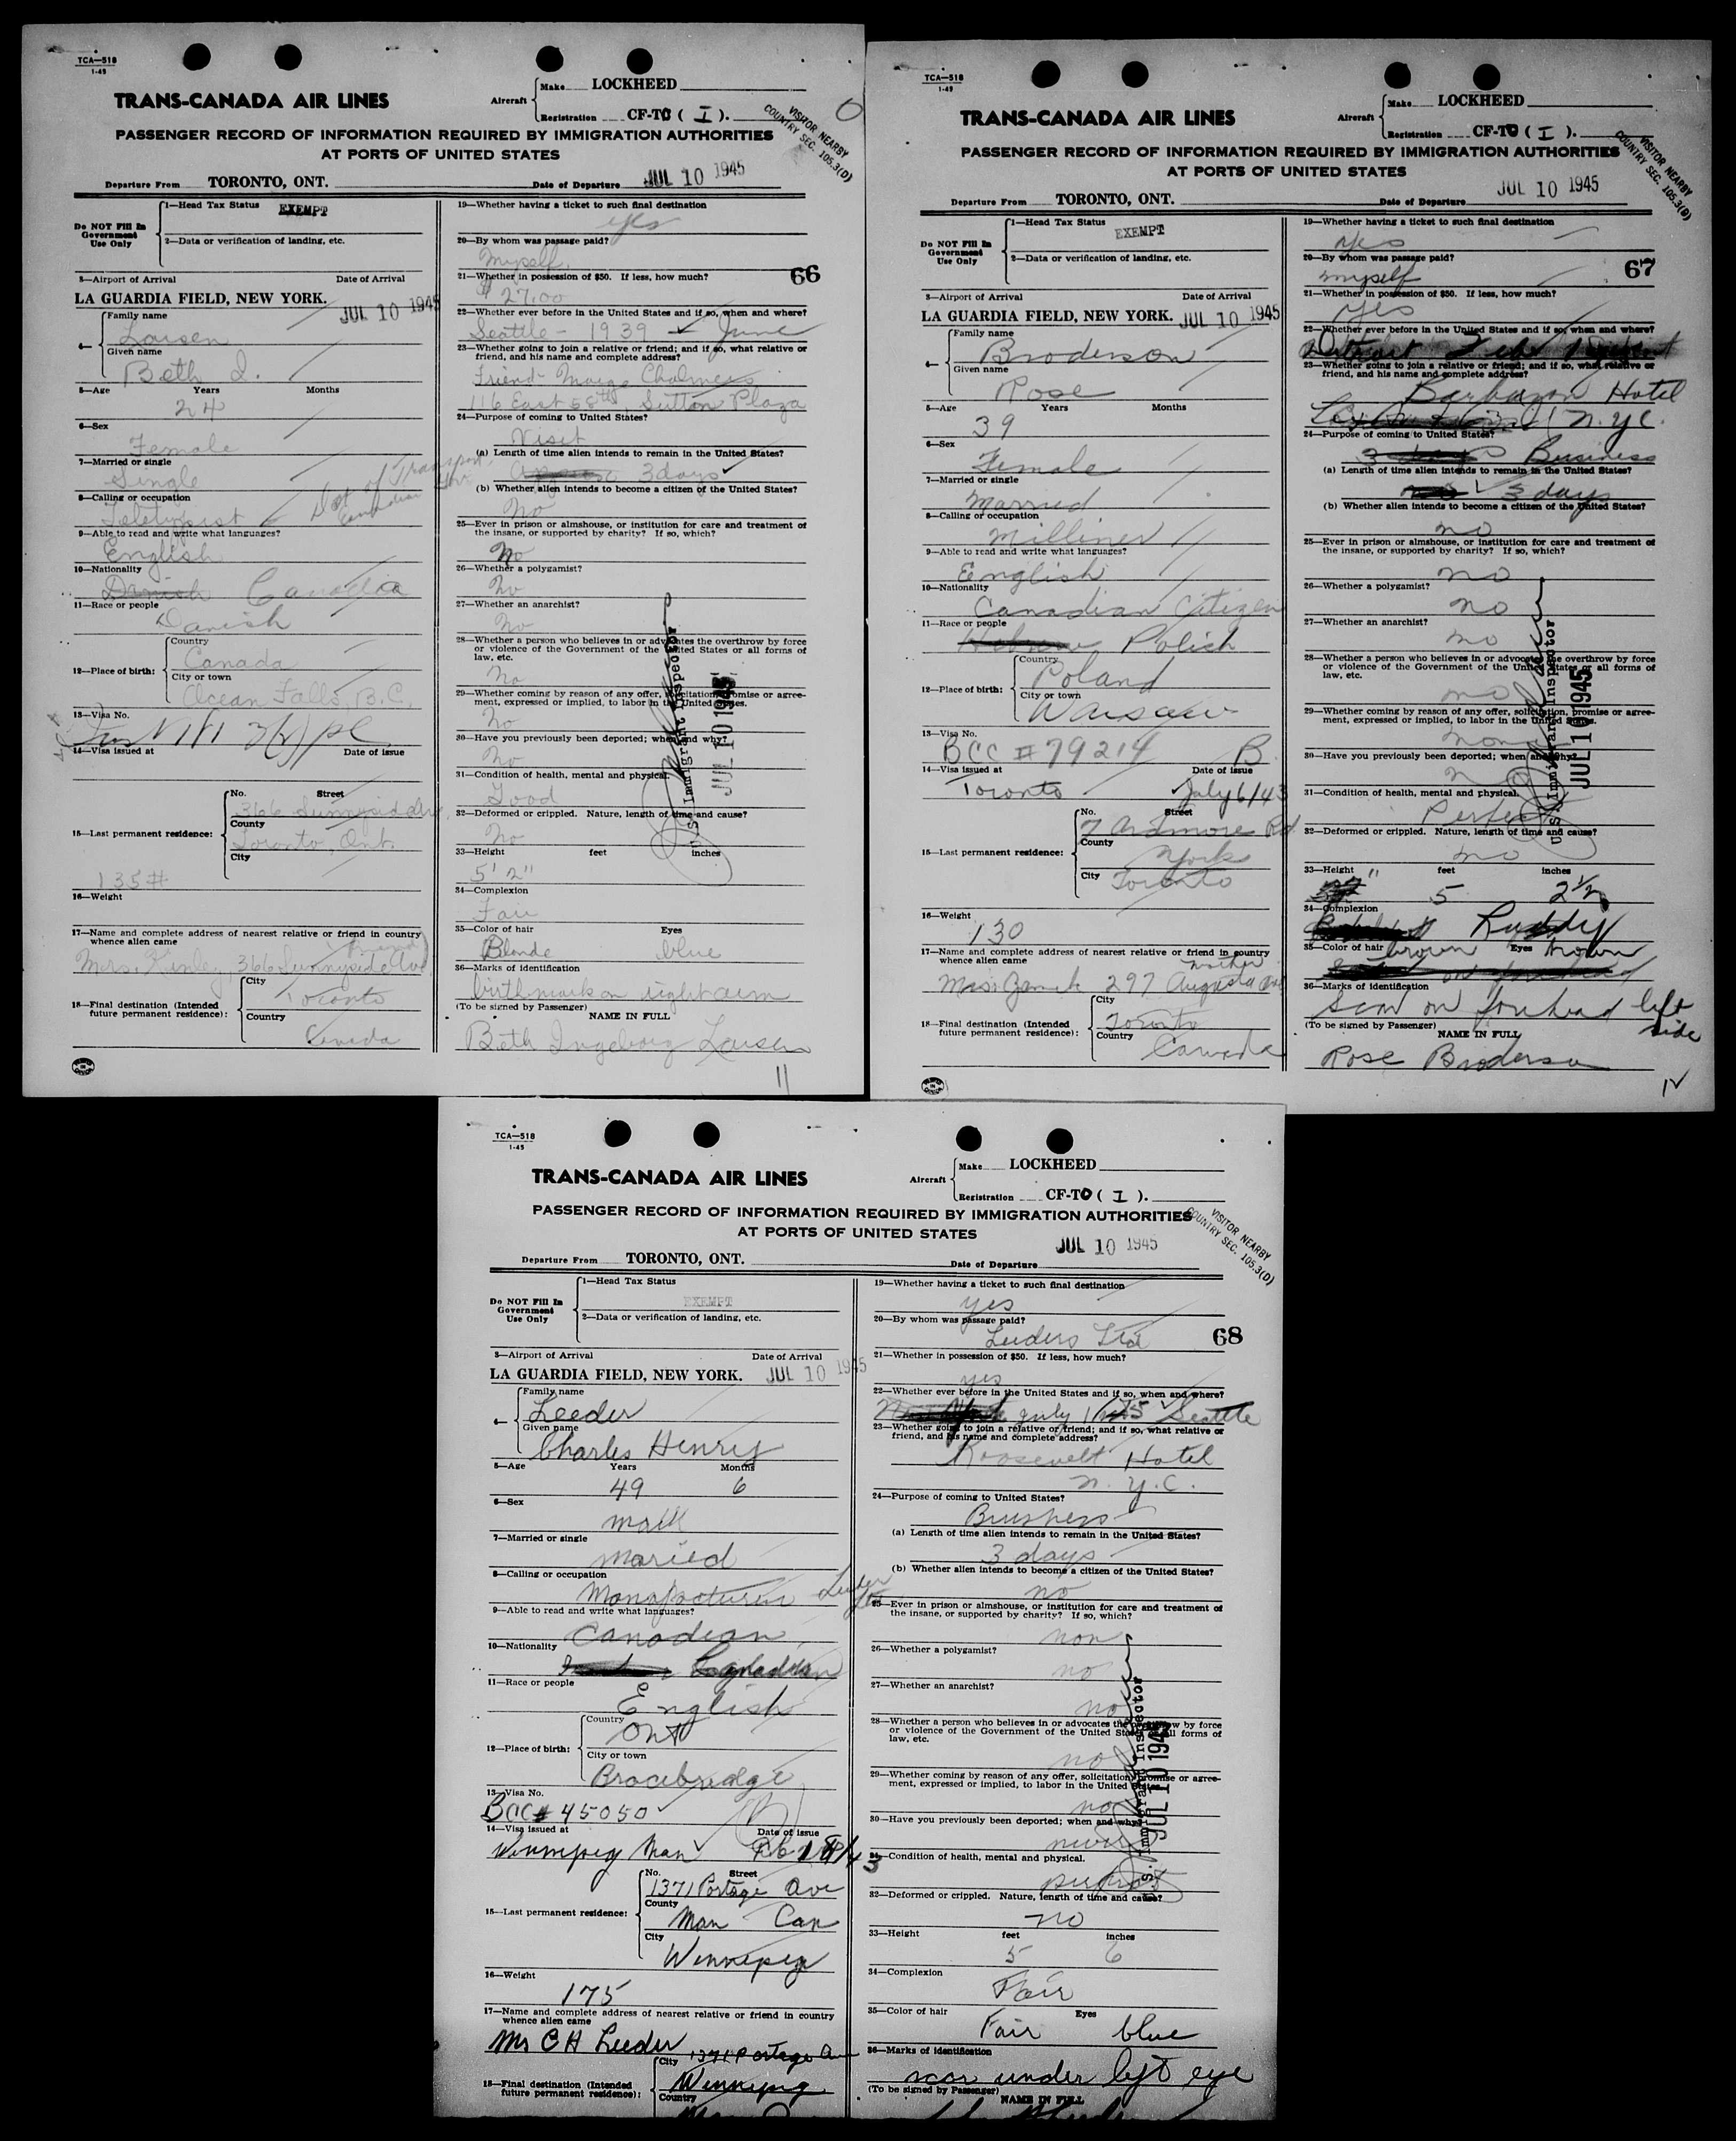 TCA—518
1-45
TRANS-CANADA AIR LINES
Aircraft
Make LOCKHEED
Registration CF-TC ( I ).
VISITOR NEARBY
COUNTRY SEC. 105.3(D)
PASSENGER RECORD OF INFORMATION REQUIRED BY IMMIGRATION AUTHORITIES
AT PORTS OF UNITED STATES
Departure From TORONTO, ONT.
Date of Departure JUL 10 1945
Do NOT Fill In
Government
Use Only
1—Head Tax Status EXEMPT
2—Data or verification of landing, etc.
3—Airport of Arrival Date of Arrival
LA GUARDIA FIELD, NEW YORK. JUL 10 1945
4—
Family name
Larsen
Given name
Beth I.
5—Age Years Months
24
6—Sex
Female
7—Married or single
Single
8—Calling or occupation
Teletypist Dept of Transport
Canadian
9—Able to read and write what languages?
English
10—Nationality
Danish Canadian
11—Race or people
Danish
12—Place of birth:
Country
Canada
City or town
Ocean Falls, B.C.
13—Visa No.
14—Visa issued at Date of issue
15—Last permanent residence:
No. Street
366 Sunnyside Ave
County
Toronto, Ont.
City
135#
16—Weight
17—Name and complete address of nearest relative or friend in country
whence alien came
friend
Mrs. Finley, 366 Sunnyside Ave
18—Final destination (Intended
future permanent residence):
City
Toronto
Country
Canada
19—Whether having a ticket to such final destination
yes
20—By whom was passage paid?
Myself
21—Whether in possession of $50. If less, how much?
66
$27.00
22—Whether ever before in the United States and if so, when and where?
Seattle - 1939 - June
23—Whether going to join a relative or friend; and if so, what relative or
friend, and his name and complete address?
Friend - Marge Chalmers
116 East 58th Sutton Plaza
24—Purpose of coming to United States?
Visit
(a) Length of time alien intends to remain in the United States?
3 days
(b) Whether alien intends to become a citizen of the United States?
No
25—Ever in prison or almshouse, or institution for care and treatment of
the insane, or supported by charity? If so, which?
No
26—Whether a polygamist?
No
27—Whether an anarchist?
No
28—Whether a person who believes in or advocates the overthrow by force
or violence of the Government of the United States or all forms of
law, etc.
No
29—Whether coming by reason of any offer, solicitation, promise or agree-
ment, expressed or implied, to labor in the United States.
No
30—Have you previously been deported; when and why?
No
31—Condition of health, mental and physical.
Good
32—Deformed or crippled. Nature, length of time and cause?
No
33—Height feet inches
5' 2"
34—Complexion
Fair
35—Color of hair Eyes
Blonde blue
36—Marks of identification
birthmark on right arm
(To be signed by Passenger)
NAME IN FULL
Beth Ingeborg Larsen
11
U.S. Immigrant Inspector
JUL 10 1945
TCA—518
1-45
TRANS-CANADA AIR LINES
Aircraft
Make LOCKHEED
Registration CF-TO ( I ).
VISITOR NEARBY
COUNTRY SEC. 105.3(D)
PASSENGER RECORD OF INFORMATION REQUIRED BY IMMIGRATION AUTHORITIES
AT PORTS OF UNITED STATES
Departure From TORONTO, ONT.
Date of Departure JUL 10 1945
Do NOT Fill In
Government
Use Only
1—Head Tax Status EXEMPT
2—Data or verification of landing, etc.
3—Airport of Arrival Date of Arrival
LA GUARDIA FIELD, NEW YORK. JUL 10 1945
4—
Family name
Broderson
Given name
Rose
5—Age Years Months
39
6—Sex
Female
7—Married or single
Married
8—Calling or occupation
Milliner
9—Able to read and write what languages?
English
10—Nationality
Canadian Citizen
11—Race or people
Hebrew Polish
12—Place of birth:
Country
Poland
City or town
Warsaw
13—Visa No.
BCC # 79214 B
14—Visa issued at Date of issue
Toronto July 6/43
15—Last permanent residence:
No. Street
7 Ardmore Rd
County
York
City
Toronto
16—Weight
130
17—Name and complete address of nearest relative or friend in country
whence alien came
mother
297 Augusta Ave
18—Final destination (Intended
future permanent residence):
City
Toronto
Country
Canada
19—Whether having a ticket to such final destination
Yes
20—By whom was passage paid?
myself
67
21—Whether in possession of $50. If less, how much?
Yes
22—Whether ever before in the United States and if so, when and where?
23—Whether going to join a relative or friend; and if so, what relative or
friend, and his name and complete address?
Barbazon Hotel
N.Y.C.
24—Purpose of coming to United States?
3 days Business
(a) Length of time alien intends to remain in the United States?
3 days
(b) Whether alien intends to become a citizen of the United States?
no
25—Ever in prison or almshouse, or institution for care and treatment of
the insane, or supported by charity? If so, which?
no
26—Whether a polygamist?
no
27—Whether an anarchist?
no
28—Whether a person who believes in or advocates the overthrow by force
or violence of the Government of the United States or all forms of
law, etc.
no
29—Whether coming by reason of any offer, solicitation, promise or agree-
ment, expressed or implied, to labor in the United States.
none
30—Have you previously been deported; when and why?
no
31—Condition of health, mental and physical.
Perfect
32—Deformed or crippled. Nature, length of time and cause?
no
33—Height feet inches
5 2½
34—Complexion
Ruddy
35—Color of hair brown Eyes brown
36—Marks of identification
Scar on forehead left
side
(To be signed by Passenger)
NAME IN FULL
Rose Broderson
12
U.S. Immigrant Inspector
JUL 10 1945
TCA—518
1-45
TRANS-CANADA AIR LINES
Aircraft
Make LOCKHEED
Registration CF-TO ( I ).
VISITOR NEARBY
COUNTRY SEC. 105.3(D)
PASSENGER RECORD OF INFORMATION REQUIRED BY IMMIGRATION AUTHORITIES
AT PORTS OF UNITED STATES
Departure From TORONTO, ONT.
Date of Departure JUL 10 1945
Do NOT Fill In
Government
Use Only
1—Head Tax Status
EXEMPT
2—Data or verification of landing, etc.
3—Airport of Arrival Date of Arrival
LA GUARDIA FIELD, NEW YORK. JUL 10 1945
4—
Family name
Leeder
Given name
Charles Henry
5—Age Years Months
49 6
6—Sex
male
7—Married or single
maried
8—Calling or occupation
Manafacturer Leeder
Ltd
9—Able to read and write what languages?
Canadian
10—Nationality
Canadian
11—Race or people
English
12—Place of birth:
Country
Ont
City or town
Bracebridge
13—Visa No.
BCC# 45050
14—Visa issued at Date of issue
Winnipeg Man Feb 18/43
15—Last permanent residence:
No. Street
1371 Portage Ave
County
Man Can
City
Winnipeg
16—Weight
175
17—Name and complete address of nearest relative or friend in country
whence alien came
Mrs C H Leeder
1371 Portage Ave
18—Final destination (Intended
future permanent residence):
City
Winnipeg
Country
19—Whether having a ticket to such final destination
yes
20—By whom was passage paid?
Leeders Ltd
68
21—Whether in possession of $50. If less, how much?
yes
22—Whether ever before in the United States and if so, when and where?
July Seattle
23—Whether going to join a relative or friend; and if so, what relative or
friend, and his name and complete address?
Roosevelt Hotel
N.Y.C.
24—Purpose of coming to United States?
Business
(a) Length of time alien intends to remain in the United States?
3 days
(b) Whether alien intends to become a citizen of the United States?
no
25—Ever in prison or almshouse, or institution for care and treatment of
the insane, or supported by charity? If so, which?
non
26—Whether a polygamist?
no
27—Whether an anarchist?
no
28—Whether a person who believes in or advocates the overthrow by force
or violence of the Government of the United States or all forms of
law, etc.
no
29—Whether coming by reason of any offer, solicitation, promise or agree-
ment, expressed or implied, to labor in the United States.
no
30—Have you previously been deported; when and why?
never
31—Condition of health, mental and physical.
perfect
32—Deformed or crippled. Nature, length of time and cause?
no
33—Height feet inches
5 6
34—Complexion
Fair
35—Color of hair Eyes
Fair blue
36—Marks of identification
scar under left eye
(To be signed by Passenger)
NAME IN FULL
U.S. Immigrant Inspector
JUL 10 1945